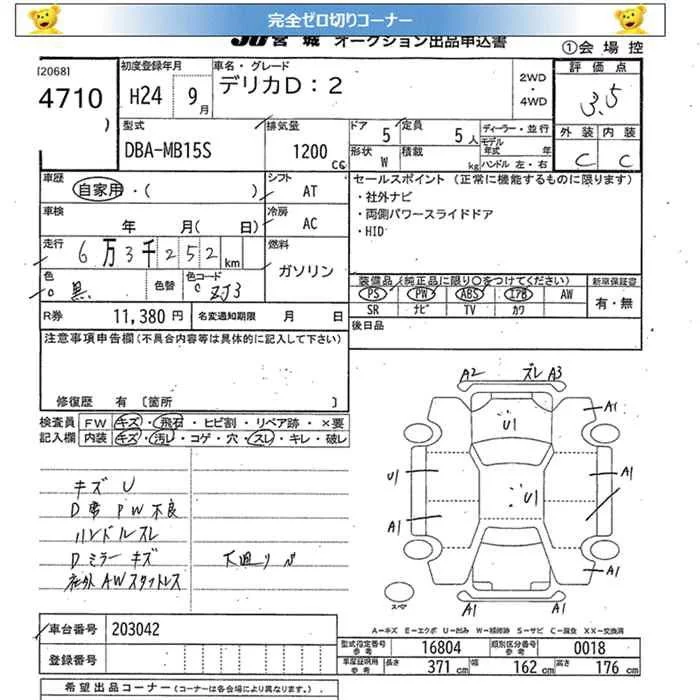 完全ゼロ切りコーナー
JU宮城 オークション出品申込書
①会場控
[2068]
4710
)
初度登録年月
H24 9月
車名・グレード
デリカD:2
2WD
・
4WD
評価点
3.5
外装 内装
C C
型式
DBA-MB15S
排気量
1200 cc
ドア 5
定員 5人
形状 W
積載 kg
ディーラー・並行
モデル年式 年
ハンドル 左・右
車歴
自家用・( )
シフト
AT
車検
年 月( 日)
冷房
AC
走行
6万3千252 km
燃料
ガソリン
色
黒
色替
色コード
ZJ3
R券 11,380円
名変通知期限 月 日
セールスポイント (正常に機能するものに限ります)
・社外ナビ
・両側パワースライドドア
・HID
装備品 (純正品に限り○をつけてください)
新車保証書
PS PW ABS エアB AW
SR ナビ TV カワ
有・無
後日品
注意事項申告欄 (不具合内容等は具体的に記入して下さい)
修復歴 有 [箇所 ]
検査員記入欄
FW キズ・飛石・ヒビ割・リペア跡・×要
内装 キズ・汚レ・コゲ・穴・スレ・キレ・破レ
キズ U
D席 PW不良
ハンドルスレ
Dミラーキズ
社外AWスタットレス
A2 ズレ A3
U1
A1
U1
U1
A1
A1
A1
A1
A1
スペア
A1
A−キズ E−エクボ U−凹み W−補修跡 S−サビ C−腐食 XX−交換済
車台番号 203042
登録番号
型式指定番号 参考 16804
類別区分番号 参考 0018
車庫証明用 参考 長さ 371 cm 幅 162 cm 高さ 176 cm
希望出品コーナー (コーナーは各会場により異なります。)